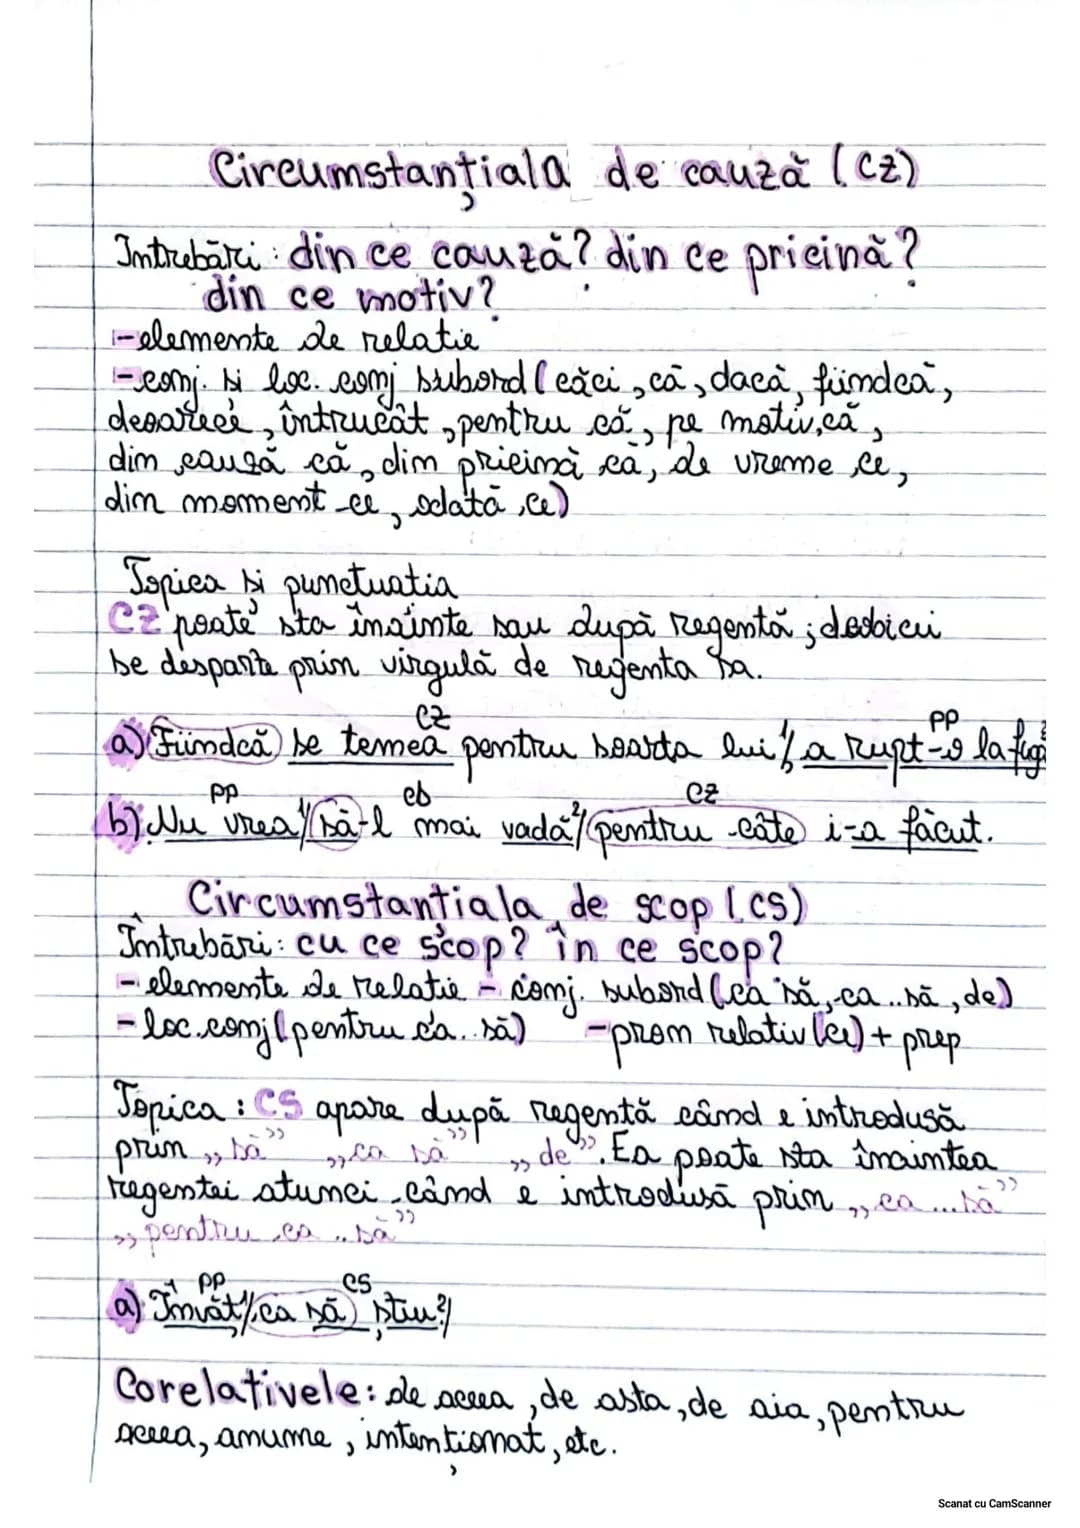 Circumstanțiala de cauză (CZ)
Întrebări: din ce cauză? din ce pricină?
din ce motiv?
-elemente de relație
-conj. și loc. conj subord (căci, că, dacă, fiindcă,
deoarece, întrucât, pentru că, pe motiv că,
din cauză că, din pricină că, de vreme ce,
din moment ce, odată ce)
Topica și punctuația
CZ poate sta înainte sau după regentă; deobicei
se desparte prin virgulă de regenta sa.
CZ PP
a) Fiindcă se temea pentru soarta lui,1/ a rupt-o la fugă2/
PP CD CZ
b) Nu vrea1/ să-l mai vadă2/ pentru câte i-a făcut.
Circumstanțiala de scop (CS)
Întrebări: cu ce scop? în ce scop?
-elemente de relație - conj. subord (ca să, ca..să, de)
-loc.conj (pentru ca..să) -pron relativ (ce) + prep
Topica: CS apare după regentă când e introdusă
prin „să” „ca să” „de”. Ea poate sta înaintea
regentei atunci când e introdusă prin „ca...să”
„pentru ca..să”
PP CS
a) Învăț1/ ca să știu2/
Corelativele: de aceea, de asta, de aia, pentru
aceea, anume, intenționat, etc.
Scanat cu CamScanner